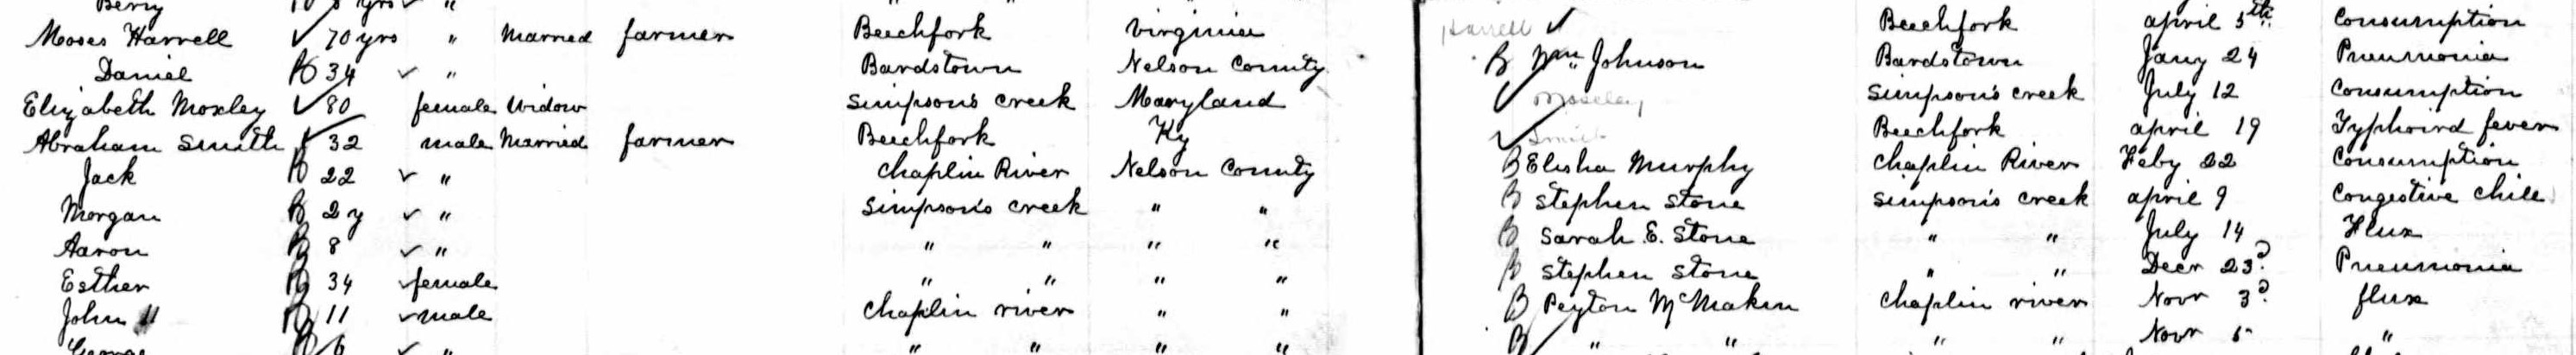 Berry yrs "
Moses Harrell 70 yrs " Married farmer Beechfork Virginia Harrell Beechfork april 5th Consumption
Daniel B 34 " Bardstown Nelson County B Wm Johnson Bardstown Jany 24 Pneumonia
Elizabeth Moxley 80 female Widow Simpson's Creek Maryland Moseley Simpson's creek July 12 Consumption
Abraham Smith 32 male Married farmer Beechfork Ky Smith Beechfork april 19 Typhoird fever
Jack B 22 " Chaplin River Nelson County B Elisha Murphy Chaplin River Feby 22 Consumption
Morgan B 2 y " Simpson's creek " " B Stephen Stone Simpson's creek april 9 Congestive Chile
Aaron B 8 " " " " " B Sarah E. Stone " " July 14 Flux
Esther B 34 female " " " " B Stephen Stone " " Decr 23d Pneumonia
John B 11 male Chaplin river " " B Peyton McMakin Chaplin river Novr 3d flux
George B 6 " " " " " B " " " " Novr 5 "